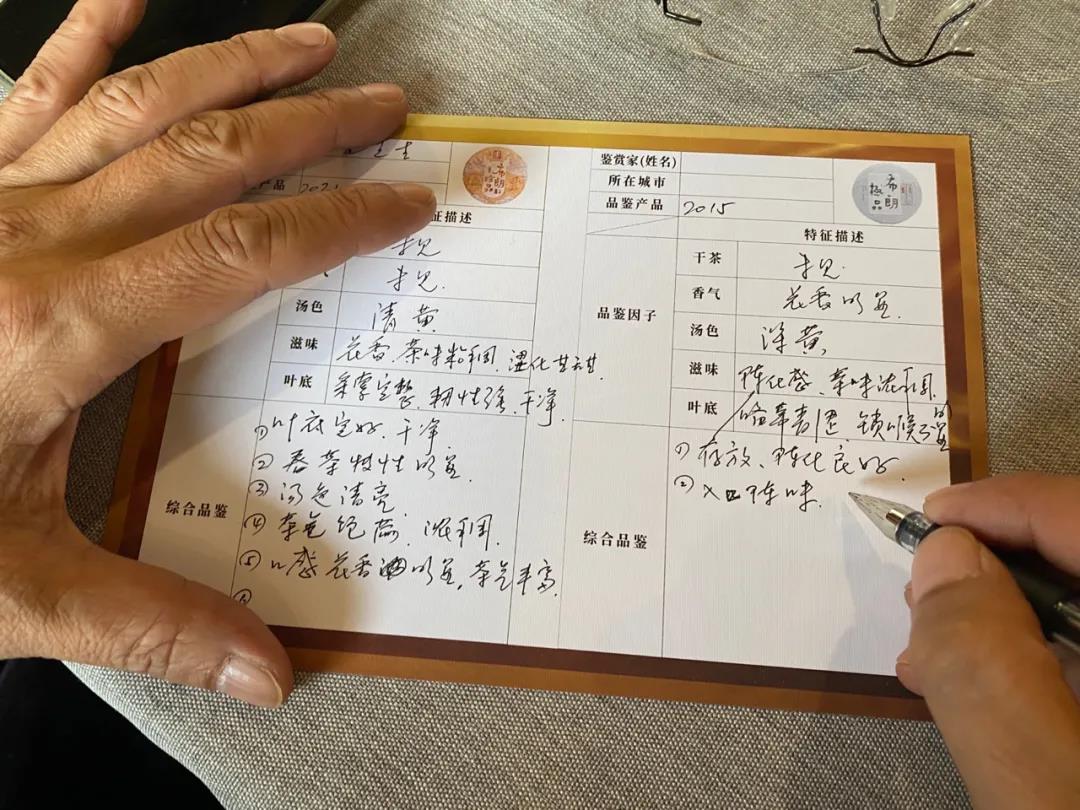 产品 2021
征描述
未见
未见.
汤色 清黄
滋味 花香.茶味 甘甜.
叶底 完整.韧性强.干净.
综合品鉴
①叶底完好.干净
②春茶特性明显.
③汤色清亮.
④茶气饱满.
⑤口感花香明显,茶气丰富.
⑥
希朗
极品
鉴赏家(姓名)
所在城市
品鉴产品 2015
特征描述
品鉴因子
干茶 未见.
香气 花香明显.
汤色 深黄
滋味 陈化感、茶味
叶底 锁喉
综合品鉴
①存放、陈化良好
②入口陈味.
希朗
极品